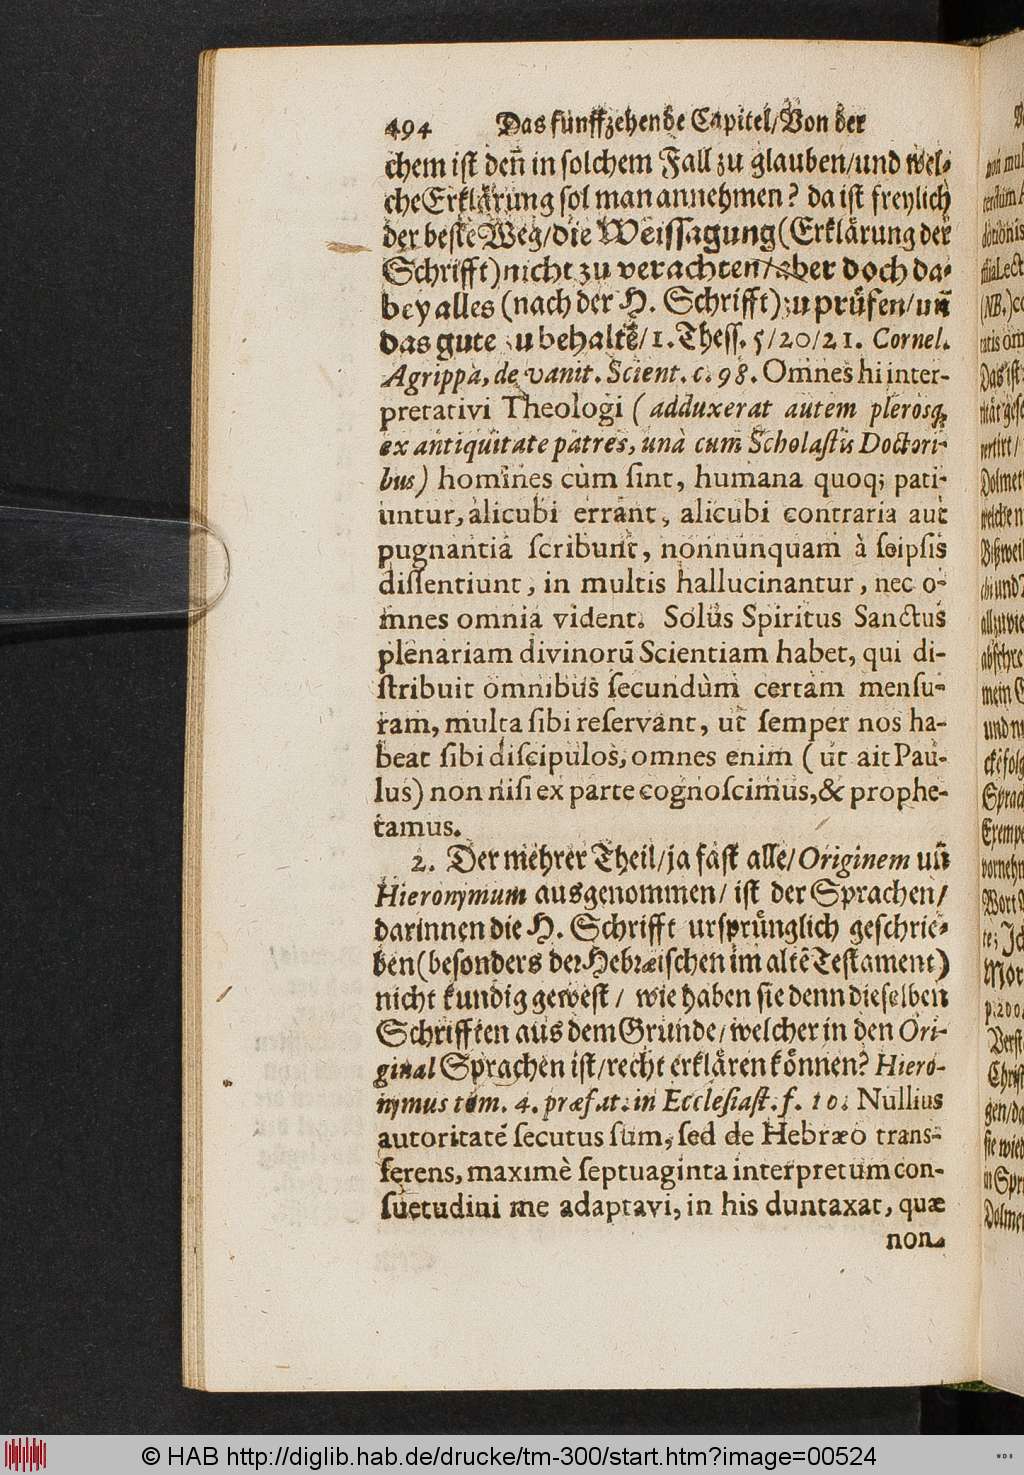 494 Das fünffzehende Capitel/Von der
chem ist deñ in solchem Fall zu glauben/und wel-
che Erklärung sol man annehmen? da ist freylich
der beste Weg/die Weissagung (Erklärung der
Schrifft) nicht zu verachten/aber doch da-
bey alles (nach der H. Schrifft) zu prüfen/uñ
das gute zu behaltẽ/1. Thess. 5/20/21. Cornel.
Agrippa, de vanit. Scient. c. 98. Omnes hi inter-
pretativi Theologi (adduxerat autem plerosq;
ex antiquitate patres, unà cum Scholastis Doctori-
bus) homines cùm sint, humana quoq; pati-
untur, alicubi errant, alicubi contraria aut
pugnantia scribunt, nonnunquam à seipsis
dissentiunt, in multis hallucinantur, nec o-
mnes omnia vident. Solus Spiritus Sanctus
plenariam divinorũ Scientiam habet, qui di-
stribuit omnibus secundùm certam mensu-
ram, multa sibi reservant, ut semper nos ha-
beat sibi discipulos, omnes enim (ut ait Pau-
lus) non nisi ex parte cognoscimus, & prophe-
tamus.
2. Der mehrer Theil/ja fast alle/Originem uñ
Hieronymum ausgenommen/ ist der Sprachen/
darinnen die H. Schrifft ursprünglich geschrie-
ben (besonders der Hebræischen im altẽ Testament)
nicht kundig gewest/ wie haben sie denn dieselben
Schrifften aus dem Grunde/welcher in den Ori-
ginal Sprachen ist/recht erklären können? Hiero-
nymus tom. 4. præfat. in Ecclesiast. f. 10. Nullius
autoritatẽ secutus sum, sed de Hebræo trans-
ferens, maximè septuaginta interpretum con-
suetudini me adaptavi, in his duntaxat, quæ
non
© HAB http://diglib.hab.de/drucke/tm-300/start.htm?image=00524